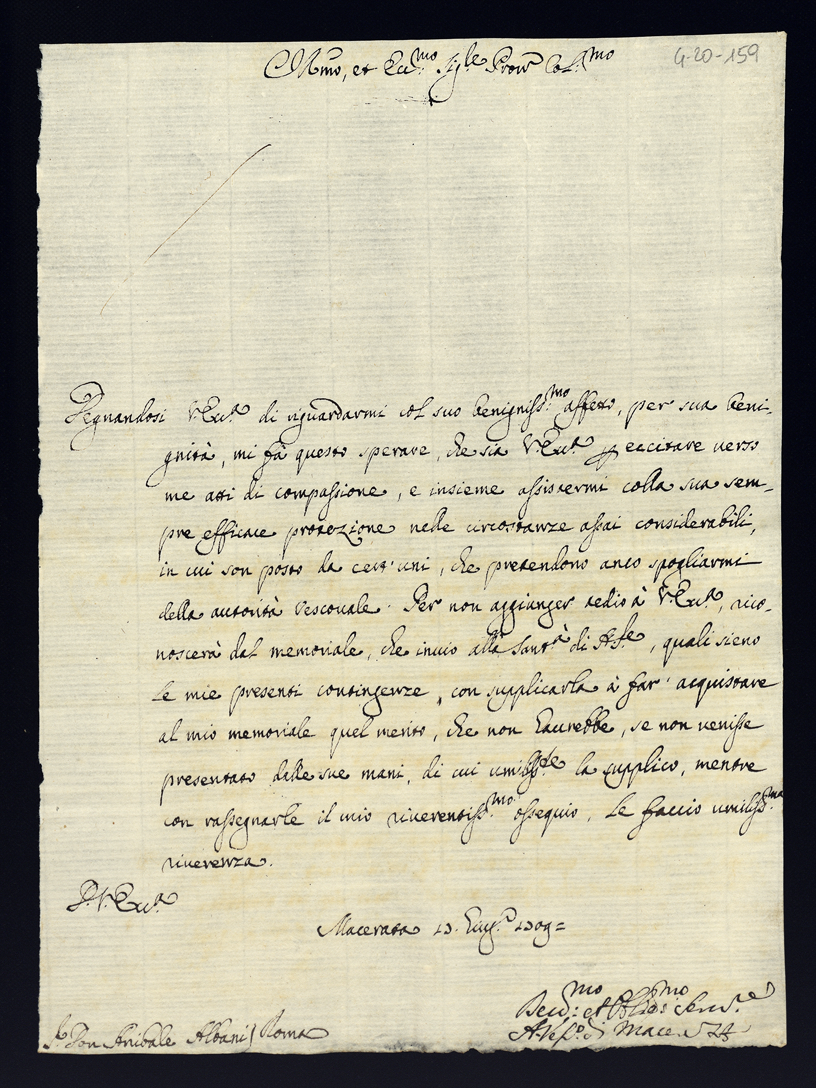 4-20-159
Ill.mo, et Ecc.mo Sig.re Pron Col.mo
Degnandosi V. Ecc.a di riguardarmi col suo benigniss.mo affetto, per sua beni-
gnità, mi fà questo sperare, che sia V. Ecc.a p eccitare verso
me atti di compassione, e insieme assistermi colla sua sem-
pre efficace protezione nelle circostanze assai considerabili,
in cui son posto da cert'uni, che pretendono anco spogliarmi
della autorità Vescovale. Per non aggiunger tedio à V. Ecc.a, rico-
noscerà dal memoriale, che invio alla Sant.à di N. Sre, quali sieno
le mie presenti contingenze, con supplicarla à far' acquistare
al mio memoriale quel merito, che non haurebbe, se non venisse
presentato dalle sue mani, di cui umilisste la supplico, mentre
con rassegnarle il mio riverentiss.mo ossequio, le faccio umiliss.ma
riverenza.
D. V. Ecc.a
Macerata 13. 1709=
Dev.mo et Obl.mo Serv.e
A. Vesc.o di Macer.a
S.r Don Anibale Albani / Roma